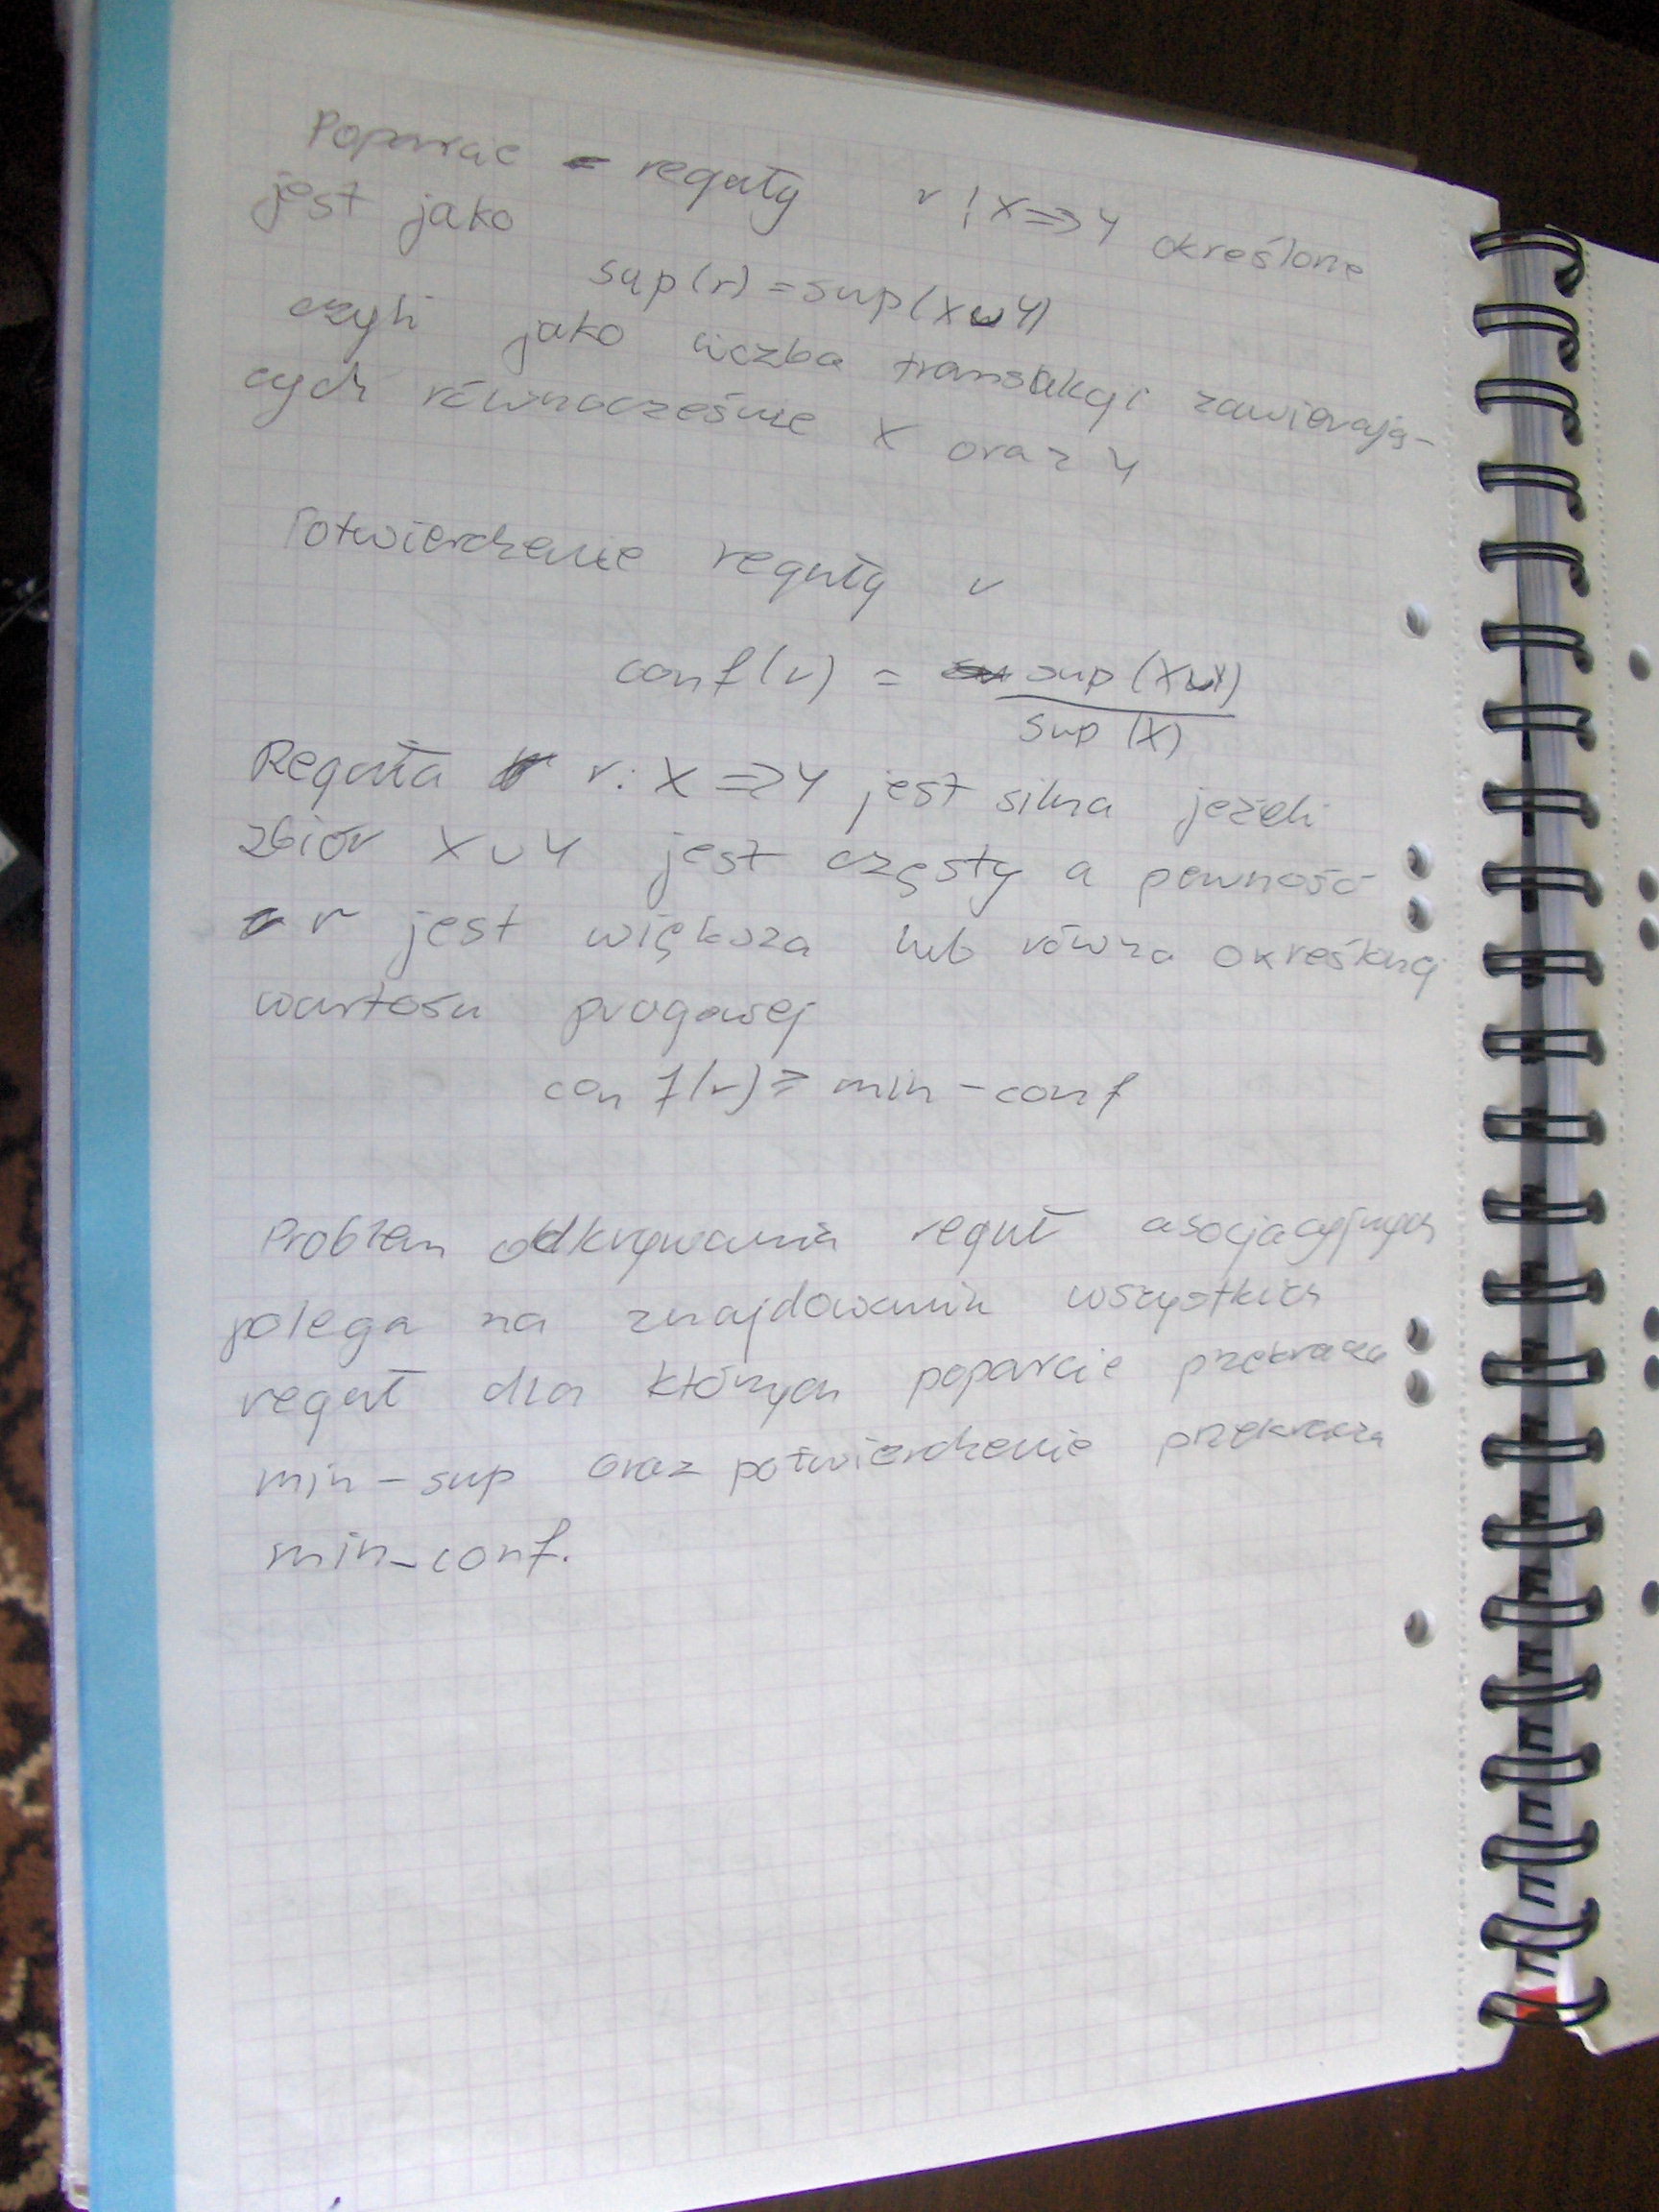 Poparcie reguły r : X => Y określone
jest jako
sup(r) = sup(X ∪ Y)
czyli jako liczba transakcji zawierają-
cych równocześnie X oraz Y
Potwierdzenie reguły r
conf(r) = sup(X ∪ Y)
sup(X)
Reguła r: X => Y jest silna jeżeli
zbiór X ∪ Y jest częsty a pewność
r jest większa lub równa określonej
wartości progowej
conf(r) ≥ min-conf
Problem odkrywania reguł asocjacyjnych
polega na znajdowaniu wszystkich
reguł dla których poparcie przekracza
min-sup oraz potwierdzenie przekracza
min_conf.